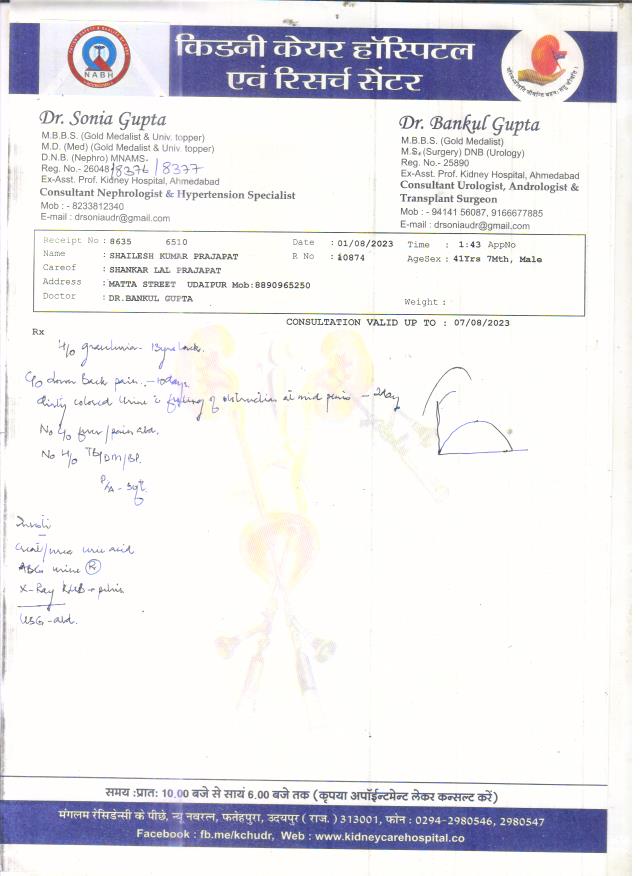 NABH
किडनी केयर हॉस्पिटल
एवं रिसर्च सेंटर
Dr. Sonia Gupta
M.B.B.S. (Gold Medalist & Univ. topper)
M.D. (Med) (Gold Medalist & Univ. topper)
D.N.B. (Nephro) MNAMS.
Reg. No.- 26048/8376/8377
Ex-Asst. Prof. Kidney Hospital, Ahmedabad
Consultant Nephrologist & Hypertension Specialist
Mob : - 8233812340
E-mail : drsoniaudr@gmail.com
Dr. Bankul Gupta
M.B.B.S. (Gold Medalist)
M.S. (Surgery) DNB (Urology)
Reg. No.- 25890
Ex-Asst. Prof. Kidney Hospital, Ahmedabad
Consultant Urologist, Andrologist &
Transplant Surgeon
Mob : - 94141 56087, 9166677885
E-mail : drsoniaudr@gmail.com
Receipt No : 8635 6510 Date : 01/08/2023 Time : 1:43 AppNo
Name : SHAILESH KUMAR PRAJAPAT R No : 10874 AgeSex : 41Yrs 7Mth, Male
Careof : SHANKAR LAL PRAJAPAT
Address : MATTA STREET UDAIPUR Mob:8890965250
Doctor : DR.BANKUL GUPTA Weight :
CONSULTATION VALID UP TO : 07/08/2023
Rx
H/o back.
C/o Back pain - 10days.
colored urine c̄ feeling of obstruction at mid penis - 2day
No H/o fever/pain abd.
No H/o TB/DM/BP.
P/A - soft.
Creat/urea uric acid
urine (R)
X-Ray KUB + pelvis
USG - abd.
समय :प्रात: 10.00 बजे से सायं 6.00 बजे तक (कृपया अपॉईन्टमेन्ट लेकर कन्सल्ट करें)
मंगलम रेसिडेन्सी के पीछे, न्यू नवरत्न, फतेहपुरा, उदयपुर ( राज. ) 313001, फोन : 0294-2980546, 2980547
Facebook : fb.me/kchudr, Web : www.kidneycarehospital.co